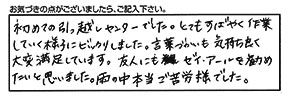 お気づきの点がございましたら、ご記入下さい。
初めての引っ越しセンターでした。とてもすばやく作業
していく様子にビックリしました。言葉づかいも気持ち良く
大変満足しています。友人にも ゼイ・アールを勧め
たいと思いました。雨の中本当ご苦労様でした。